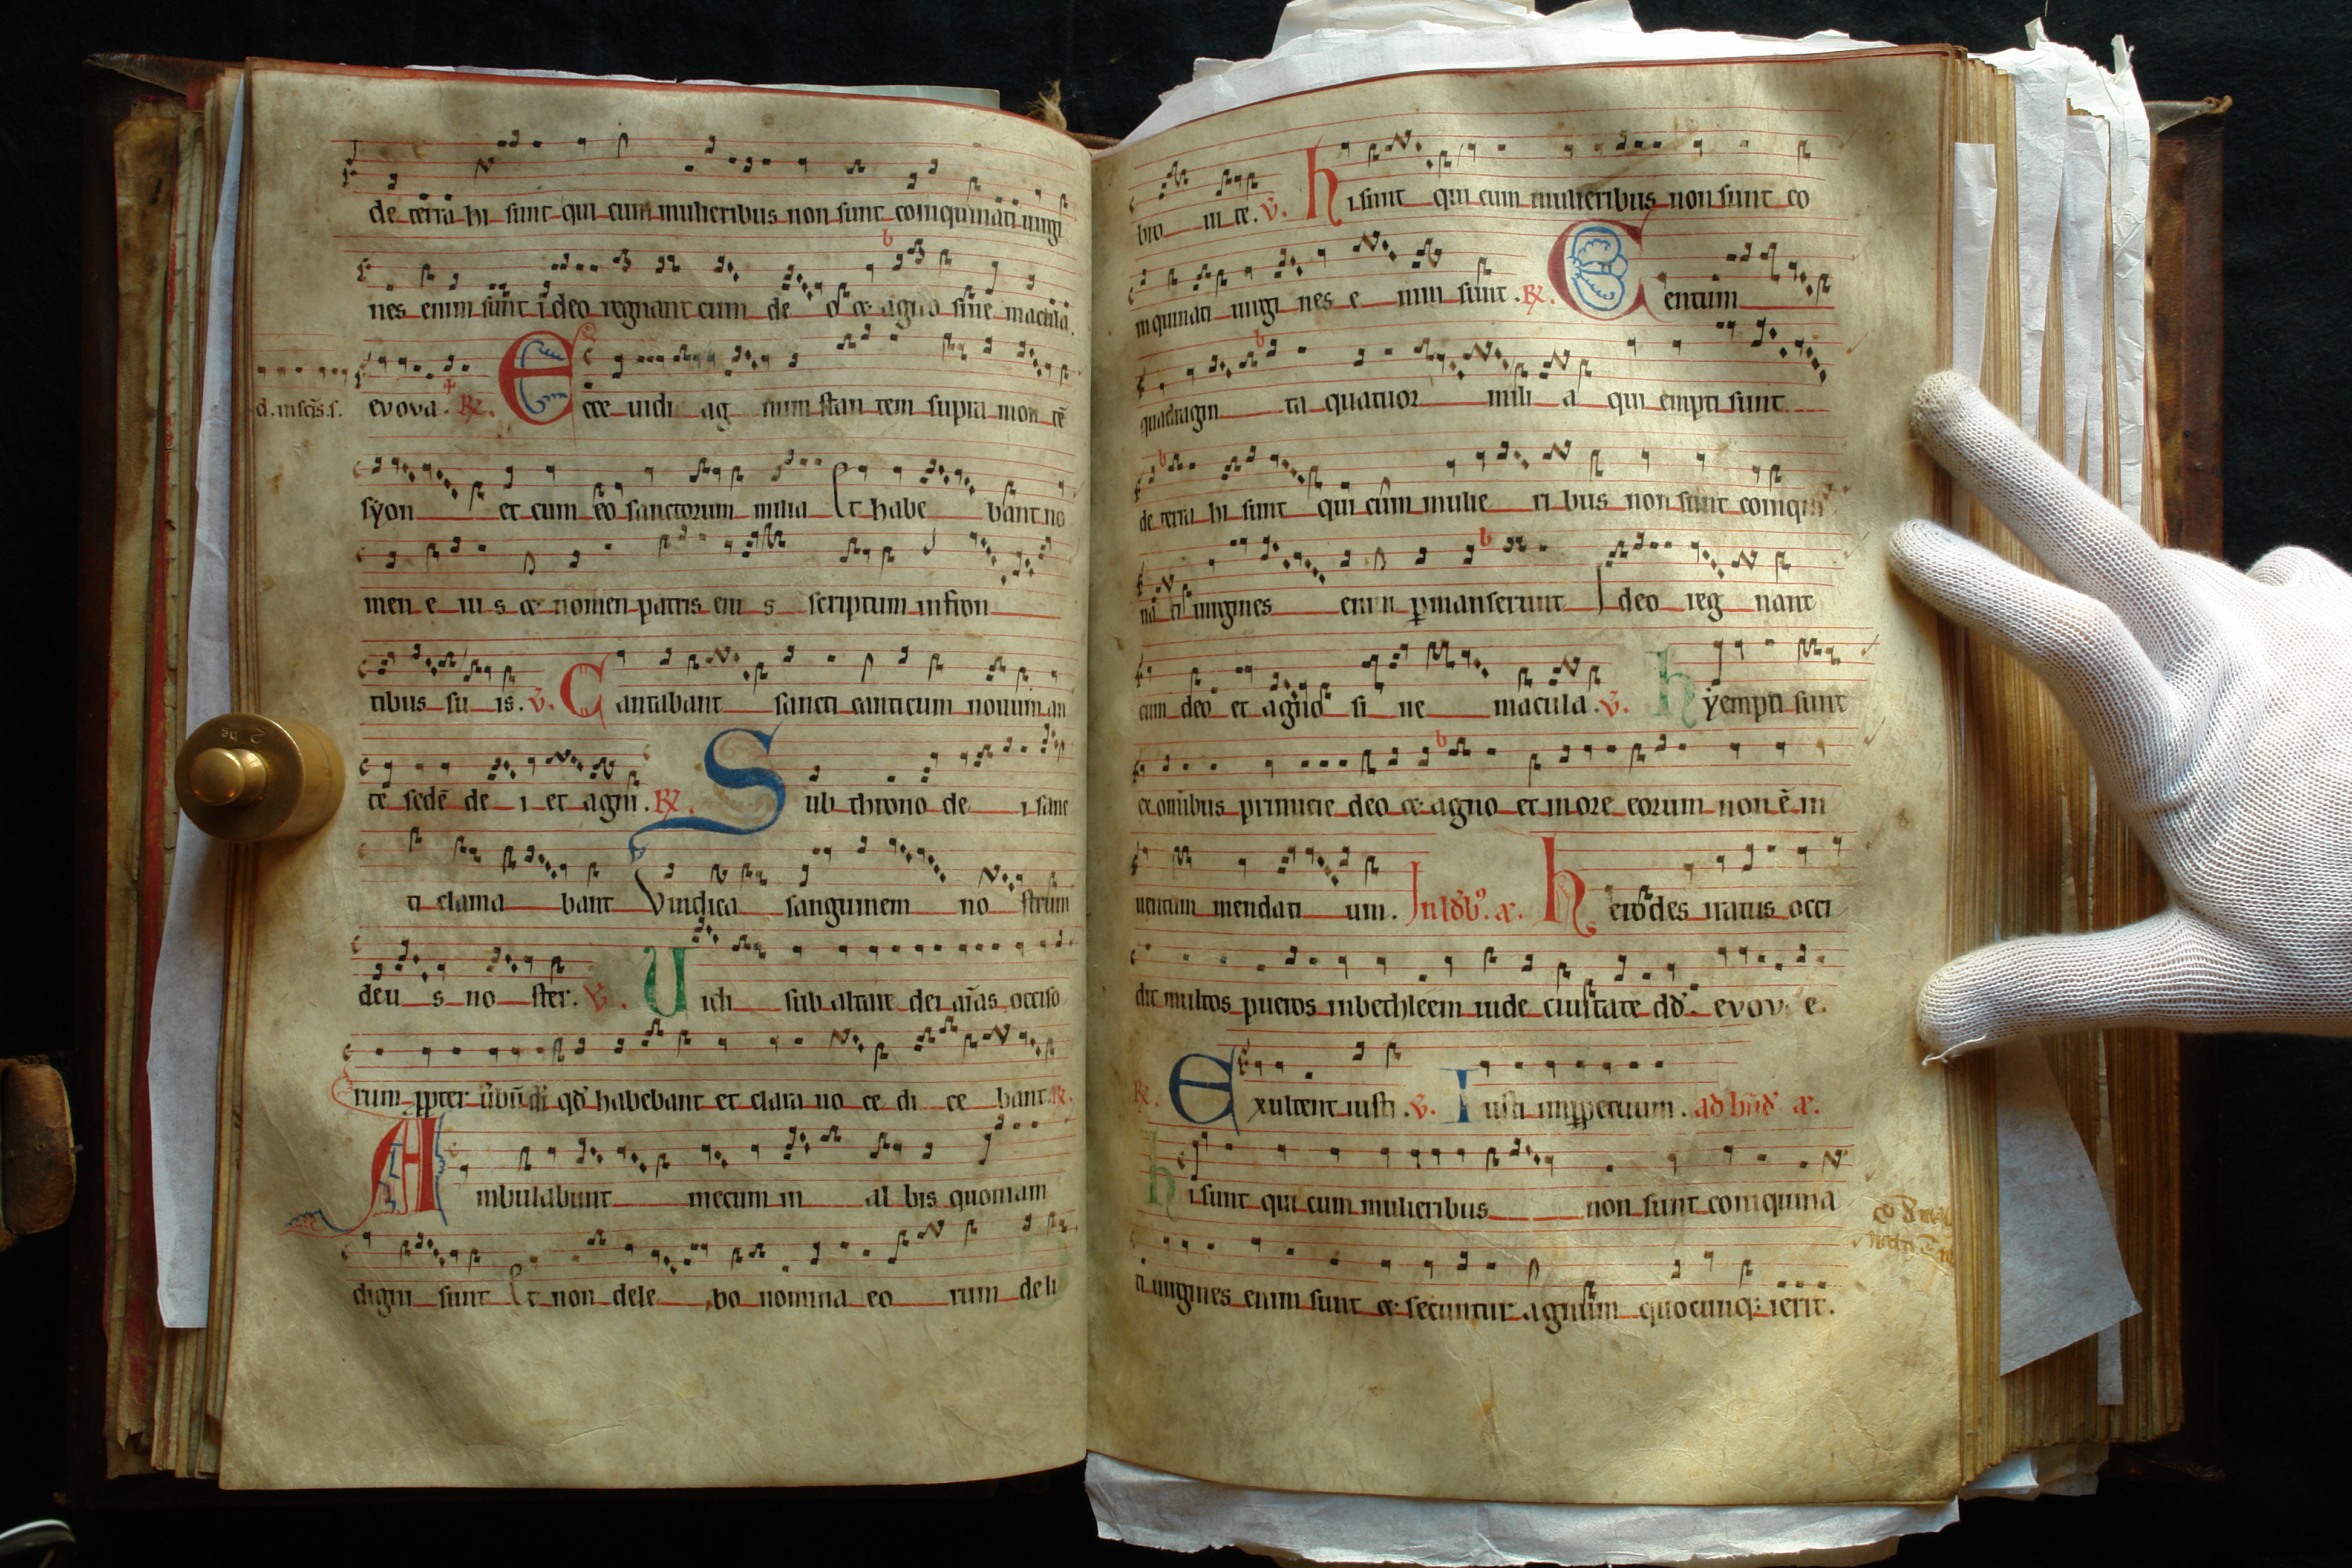 de terra hi sunt qui cum mulieribus non sunt coinquinati uirgi
nes enim sunt ideo regnant cum de o & agno sine macula.
d. in scis. s.
evova. R. Ecce uidi ag num stan tem supra mon tē
syon et cum eo sanctorum milia Et habe bant no
men e iu s & nomen patris eiu s scriptum in fron
tibus su is. V. Cantabant sancti canticum nouum an
te sedē de i et agni. R. Sub throno de i sanc
ti clama bant Vindica sanguinem no strum
deu s no ster. V. Uidi sub altare dei aīas occiso
rum ppter ūbū di qd habebant et clara uo ce di ce bant R.
Ambulabunt mecum in al bis quoniam
digni sunt Et non dele bo nomina eo rum de li
bro ui te. V. hi sunt qui cum mulieribus non sunt co
inquinati uirgi nes e nim sunt. R. Centum
quadragin ta quatuor mili a qui empti sunt
de terra hi sunt qui cum mulie ri bus non sunt coinqui
na ti uirgines enim pmanserunt Ideo reg nant
cum deo et agno si ne macula. V. hy empti sunt
ex omibus primicie deo & agno et in ore eorum non ē in
uentum mendaci um. In ld. æ. herodes iratus occi
dit multos pueros in bethleem iude ciuitate dd. evov e.
R. Exultent iusti. V. Iusti inppetuum. ad bnd æ.
hi sunt qui cum mulieribus non sunt coinquina
ti uirgines enim sunt & secuntur agnum quocunq; ierit.
2 hg